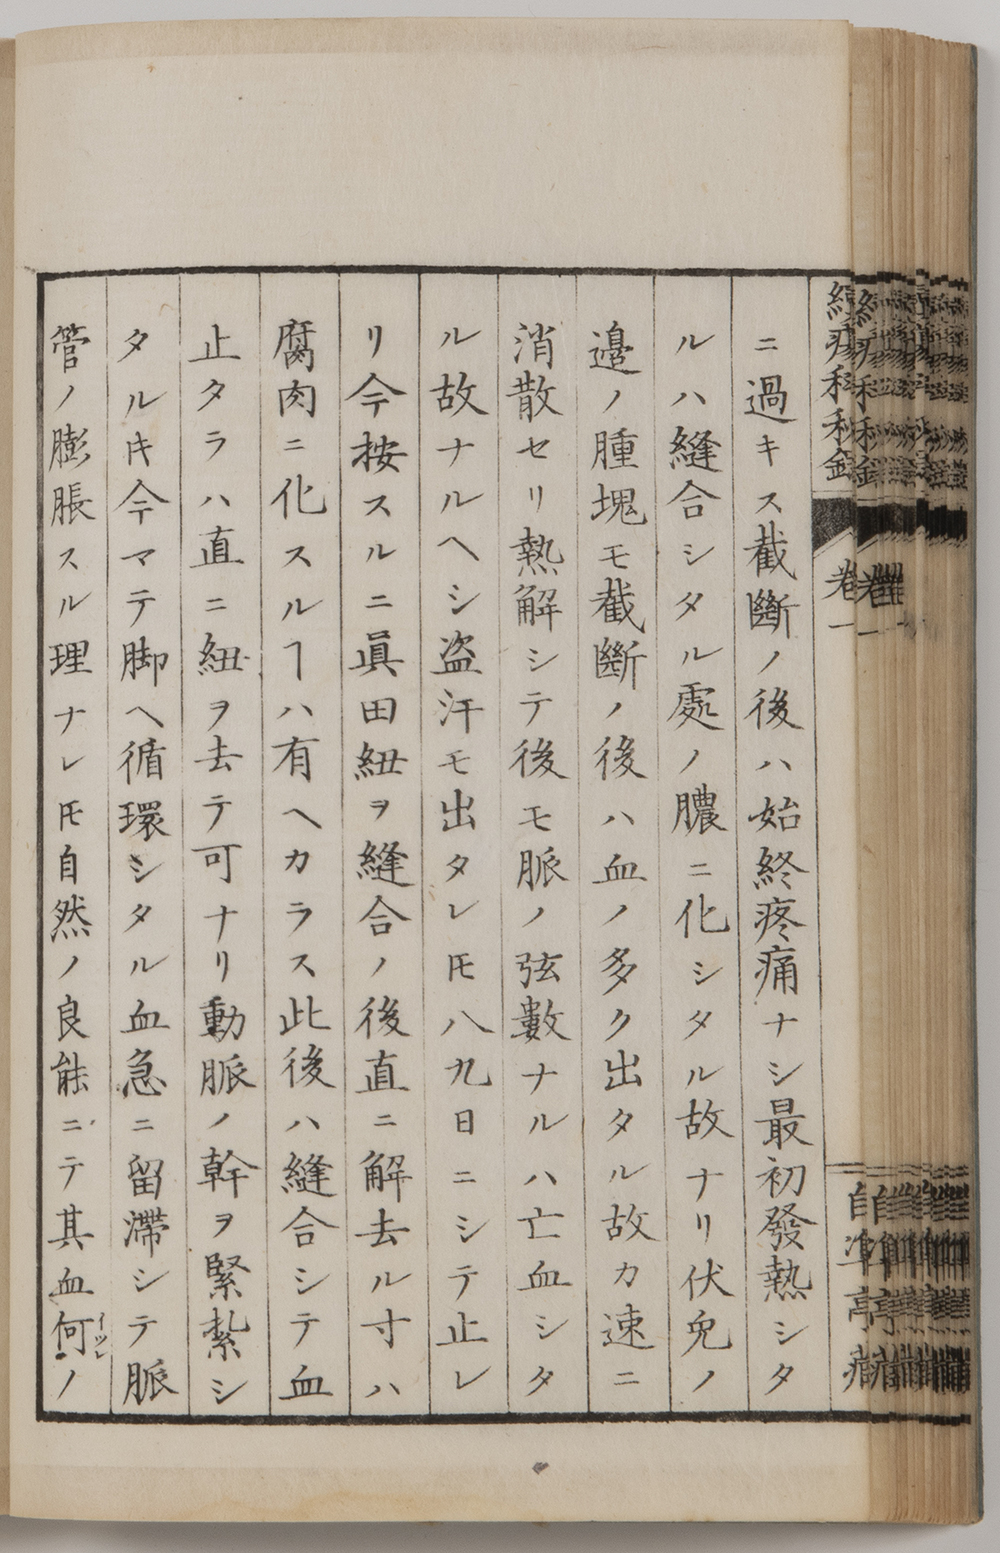 ニ過キス截斷ノ後ハ始終疼痛ナシ最初發熱シタ
ルハ縫合シタル處ノ膿ニ化シタル故ナリ伏兔ノ
邉ノ腫塊モ截斷ノ後ハ血ノ多ク出タル故カ速ニ
消散セリ熱解シテ後モ脈ノ弦數ナルハ亡血シタ
ル故ナルヘシ盗汗モ出タレ𪜈八九日ニシテ止レ
リ今按スルニ眞田紐ヲ縫合ノ後直ニ解去ル寸ハ
腐肉ニ化スルヿハ有ヘカラス此後ハ縫合シテ血
止タラハ直ニ紐ヲ去テ可ナリ動脈ノ幹ヲ緊紮シ
タル𪜈今マテ脚ヘ循環シタル血急ニ留滯シテ脈
管ノ膨脹スル理ナレ𪜈自然ノ良能ニテ其血何ノ
イツレ
卷一